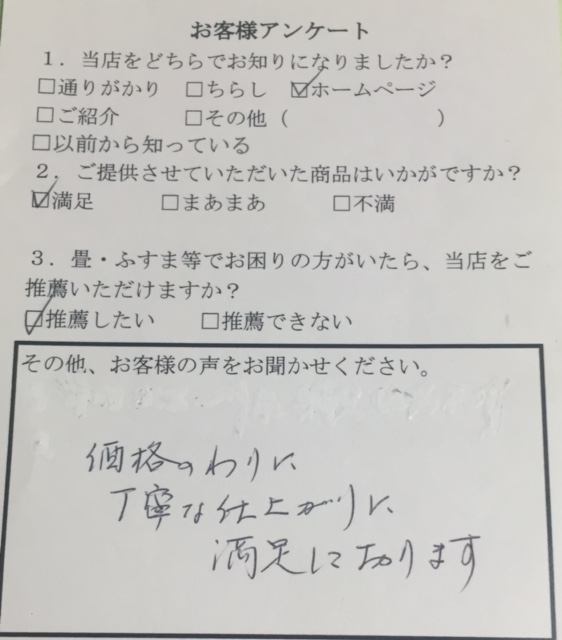 お客様アンケート
1．当店をどちらでお知りになりましたか？
□通りがかり　□ちらし　☑ホームページ
□ご紹介　□その他（　　　　　）
□以前から知っている
2．ご提供させていただいた商品はいかがですか？
☑満足　□まあまあ　□不満
3．畳・ふすま等でお困りの方がいたら、当店をご
推薦いただけますか？
☑推薦したい　□推薦できない
その他、お客様の声をお聞かせください。
価格のわりに
丁寧な仕上がりに
満足しております